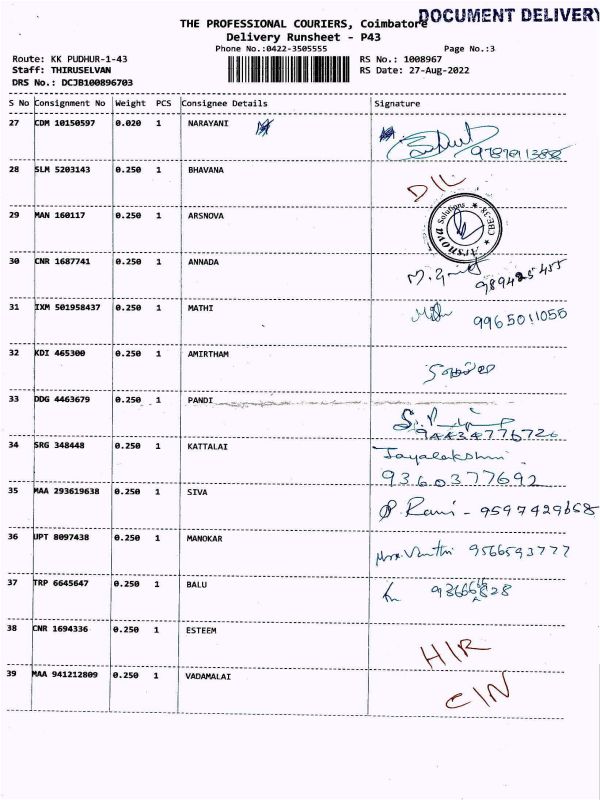 DOCUMENT DELIVERY
THE PROFESSIONAL COURIERS, Coimbatore
Delivery Runsheet - P43
Phone No.:0422-3505555 Page No.:3
Route: KK PUDHUR-1-43 RS No.: 1008967
Staff: THIRUSELVAN RS Date: 27-Aug-2022
DRS No.: DCJB100896703
S No Consignment No Weight PCS Consignee Details Signature
27 CDM 10150597 0.020 1 NARAYANI
28 SLM 5203143 0.250 1 BHAVANA
D/L
29 MAN 160117 0.250 1 ARSNOVA
Arsnova Solutions ★ CBE-38 ★
30 CNR 1687741 0.250 1 ANNADA
31 IXM 501958437 0.250 1 MATHI
9965011055
32 KDI 465300 0.250 1 AMIRTHAM
33 DDG 4463679 0.250 1 PANDI
34 SRG 348448 0.250 1 KATTALAI
Jayalakshmi
9360377692
35 MAA 293619638 0.250 1 SIVA
P. Rani - 9597429658
36 UPT 8097438 0.250 1 MANOKAR
9566593777
37 TRP 6645647 0.250 1 BALU
38 CNR 1694336 0.250 1 ESTEEM
H/R
39 MAA 941212809 0.250 1 VADAMALAI
C/N